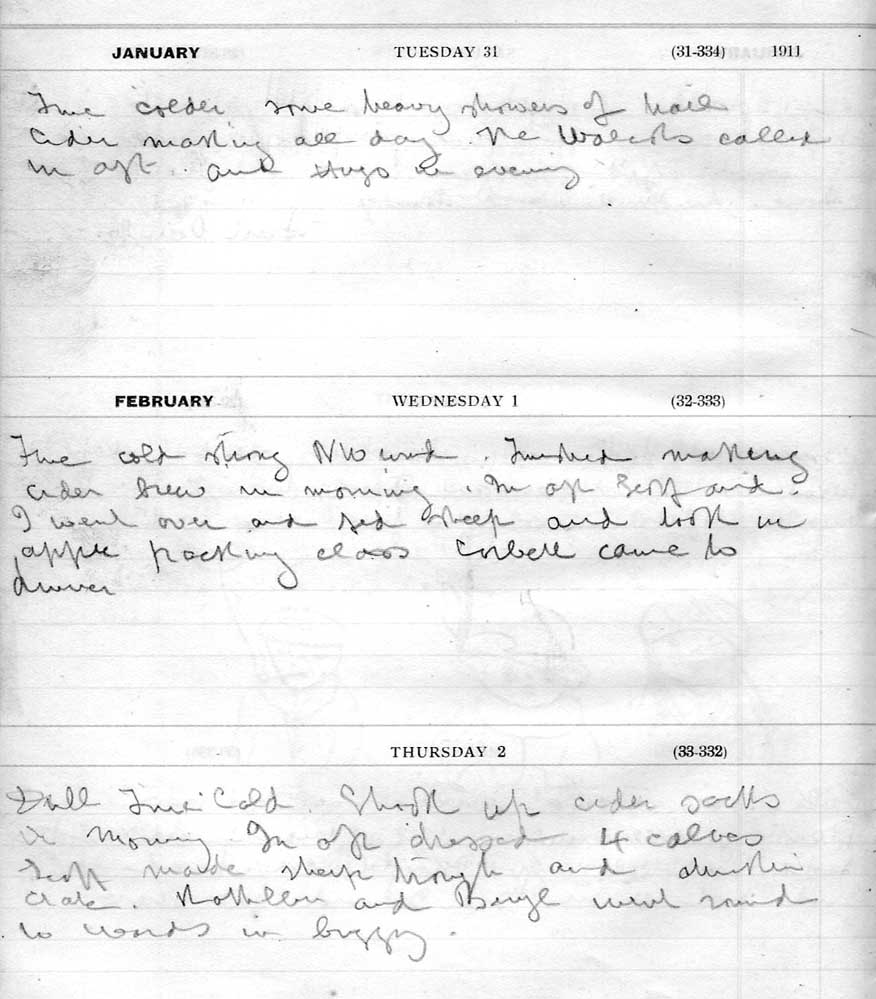 JANUARY TUESDAY 31 (31-334) 1911
Fine colder some heavy showers of hail
Cider making all day. The called
in aft. and Hugo in evening
FEBRUARY WEDNESDAY 1 (32-333)
Fine cold strong NW wind. Finished making
cider brew in morning. In aft Geoff and
I went over and fed sheep and took in
apple packing class Corbett came to
dinner
THURSDAY 2 (33-332)
Dull Fine Cold. Shook up cider sacks
in morning In aft dressed 4 calves
Geoff made sheep trough and
crate. Kathleen and Beryl went round
to Wards in buggy.